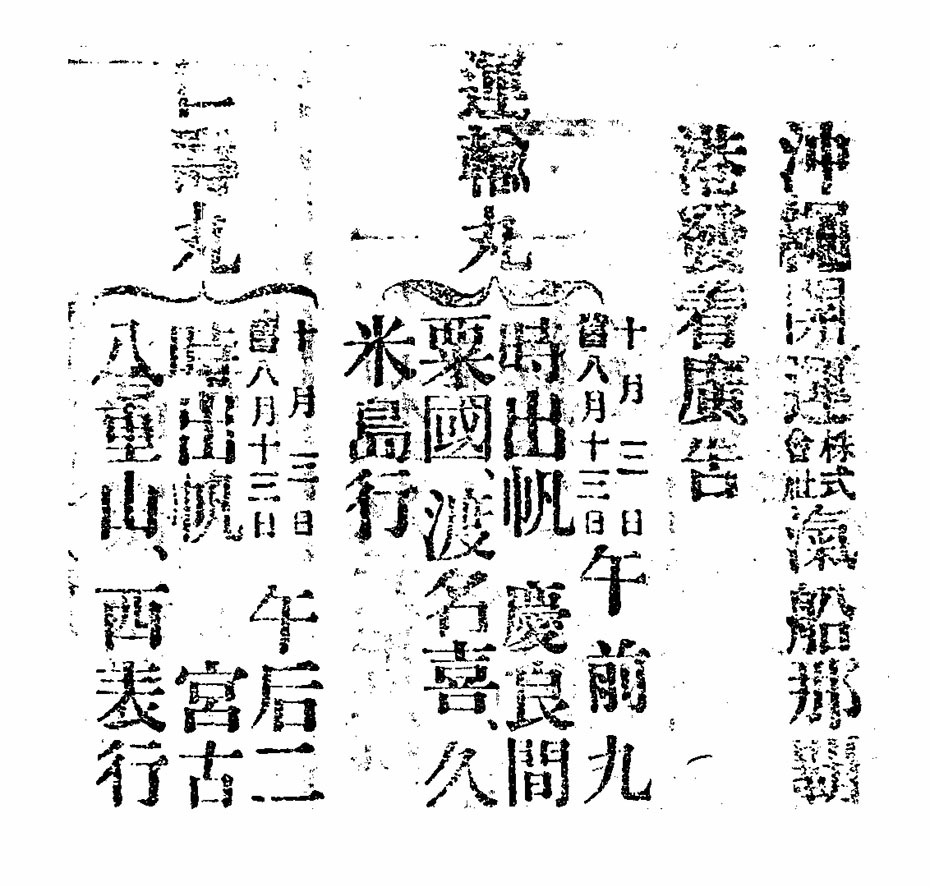 沖繩開運株式會社滊船那覇
港發着廣告
運輸丸
十月三日
舊八月十三日
午前九
時出帆 慶良間
粟國、渡名喜、久
米島行
十月三日
舊八月十三日
午后二
時出帆 宮古
八重山、西表行